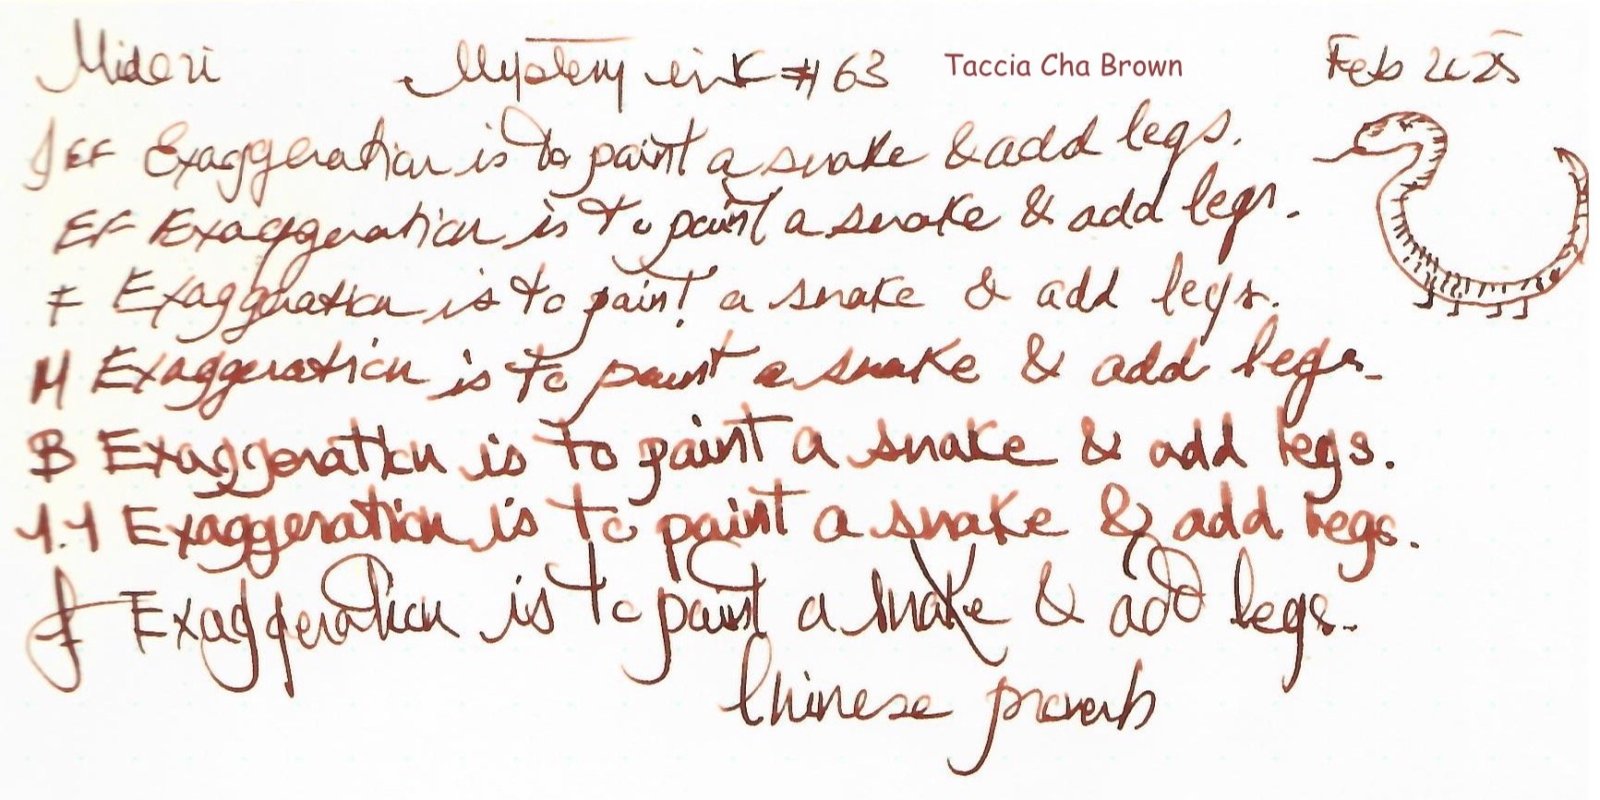 Midori Mystery ink #63 Taccia Cha Brown Feb 2025
JEF Exaggeration is to paint a snake & add legs.
EF Exaggeration is to paint a snake & add legs.
F Exaggeration is to paint a snake & add legs.
M Exaggeration is to paint a snake & add legs.
B Exaggeration is to paint a snake & add legs.
1.1 Exaggeration is to paint a snake & add legs.
f Exaggeration is to paint a snake & add legs.
Chinese proverb